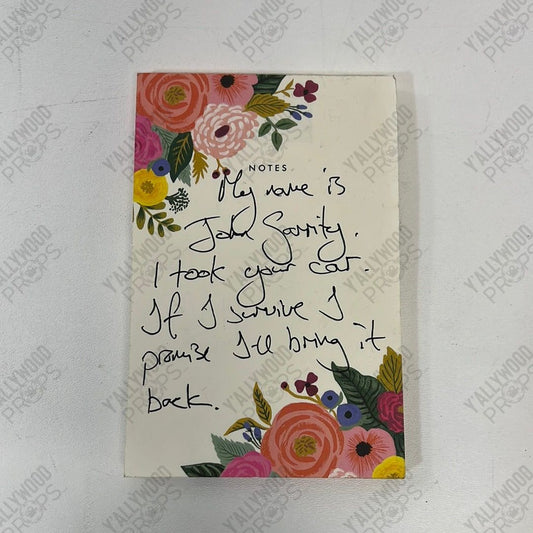 Y'ALLYWOOD PROPS
NOTES
My name is
John Garrity.
I took your car.
If I survive I
promise I'll bring it
back.